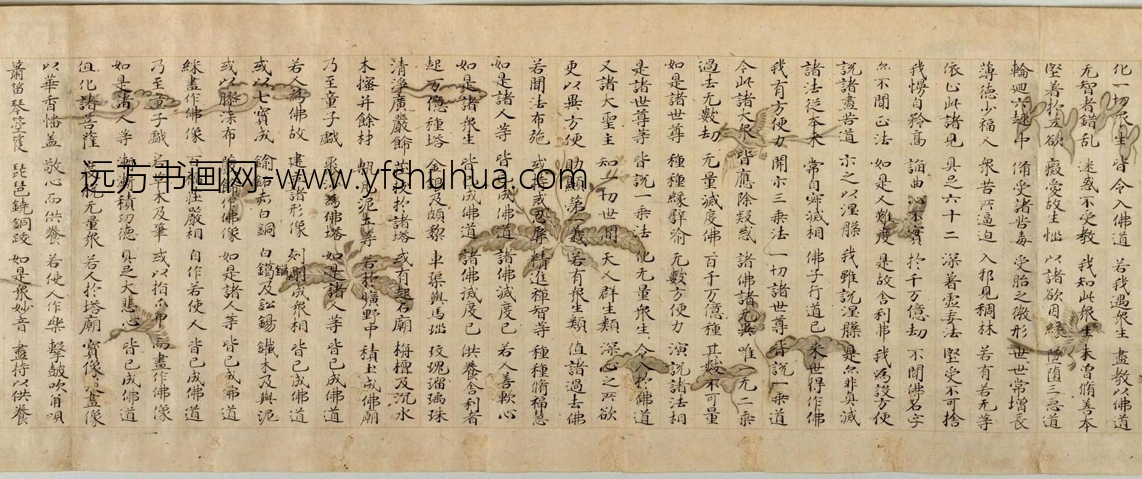 化一切衆生 皆令入佛道 若我遇衆生 盡教以佛道
无智者錯乱 迷惑不受教 我知此衆生 未曾脩善本
堅著於五欲 癡愛故生惱 以諸欲因緣 墜墮三惡道
輪迴六趣中 備受諸苦毒 受胎之微形 世世常增長
薄德少福人 衆苦所逼迫 入邪見稠林 若有若无等
依止此諸見 具足六十二 深著虛妄法 堅受不可捨
我慢自矜高 諂曲心不實 於千万億劫 不聞佛名字
亦不聞正法 如是人難度 是故舍利弗 我為設方便
說諸盡苦道 示之以涅槃 我雖說涅槃 是亦非真滅
諸法從本来 常自寂滅相 佛子行道已 来世得作佛
我有方便力 開示三乘法 一切諸世尊 皆說一乘道
今此諸大衆 皆應除疑惑 諸佛語无異 唯一无二乘
過去无數劫 无量滅度佛 百千万億種 其數不可量
如是諸世尊 種種緣譬喻 无數方便力 演說諸法相
是諸世尊等 皆說一乘法 化无量衆生 令入於佛道
又諸大聖主 知一切世間 天人群生類 深心之所欲
更以異方便 助顯第一義 若有衆生類 值諸過去佛
若聞法布施 或持戒忍辱 精進禪智等 種種脩福慧
如是諸人等 皆已成佛道 諸佛滅度已 若人善軟心
如是諸衆生 皆已成佛道 諸佛滅度已 供養舍利者
起万億種塔 金銀及頗黎 車磲與馬瑙 玫瑰瑠璃珠
清淨廣嚴飾 莊校於諸塔 或有起石廟 栴檀及沉水
木櫁并餘材 甎瓦泥土等 若於曠野中 積土成佛廟
乃至童子戲 聚沙為佛塔 如是諸人等 皆已成佛道
若人為佛故 建立諸形像 刻彫成衆相 皆已成佛道
或以七寶成 鍮鉐赤白銅 白鑞及鈆錫 鐵木及與泥
或以膠漆布 嚴飾作佛像 如是諸人等 皆已成佛道
綵畫作佛像 百福莊嚴相 自作若使人 皆已成佛道
乃至童子戲 若草木及筆 或以指爪甲 而畫作佛像
如是諸人等 漸漸積功德 具足大悲心 皆已成佛道
但化諸菩薩 度脫无量衆 若人於塔廟 寶像及畫像
以華香幡盖 敬心而供養 若使人作樂 擊鼓吹角唄
簫笛琴箜篌 琵琶鐃銅鈸 如是衆妙音 盡持以供養
远方书画网-www.yfshuhua.com